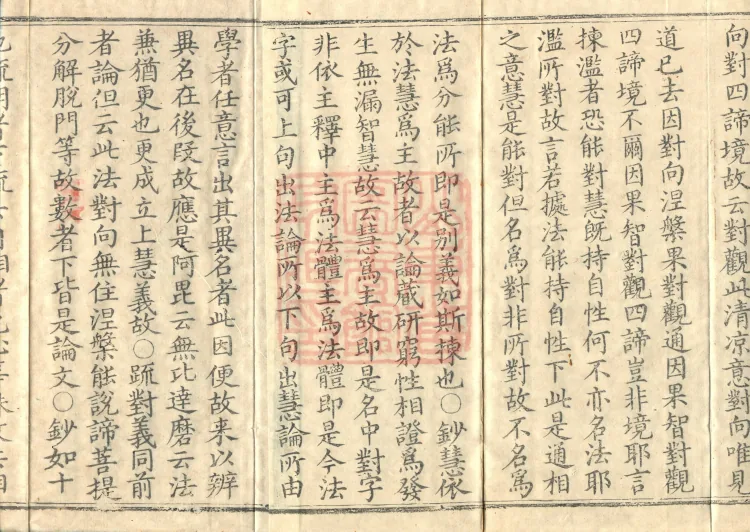 向對四諦境故云對觀此清凉意對向唯見
道已去因對向涅槃果對觀通因果智對觀
四諦境不爾因果智對觀四諦豈非境耶言
揀濫者恐能對慧旣持自性何不亦名法耶
濫所對故言若據法能持自性下此是通相
之意慧是能對但名爲對非所對故不名爲
法爲分能所即是別義如斯揀也〇鈔慧依
於法慧爲主故者以論藏研窮性相證爲發
生無漏智慧故云慧爲主故即是名中對字
非依主釋中主爲法體主爲法體即是今法
字或可上句出法論所以下句出慧論所由
學者任意言出其異名者此因便故来以辨
異名在後段故應是阿毘云無比達磨云法
兼猶更也更成立上慧義故〇疏對義同前
者論但云此法對向無住涅槃能說諦菩提
分解脫門等故數者下皆是論文〇鈔如十